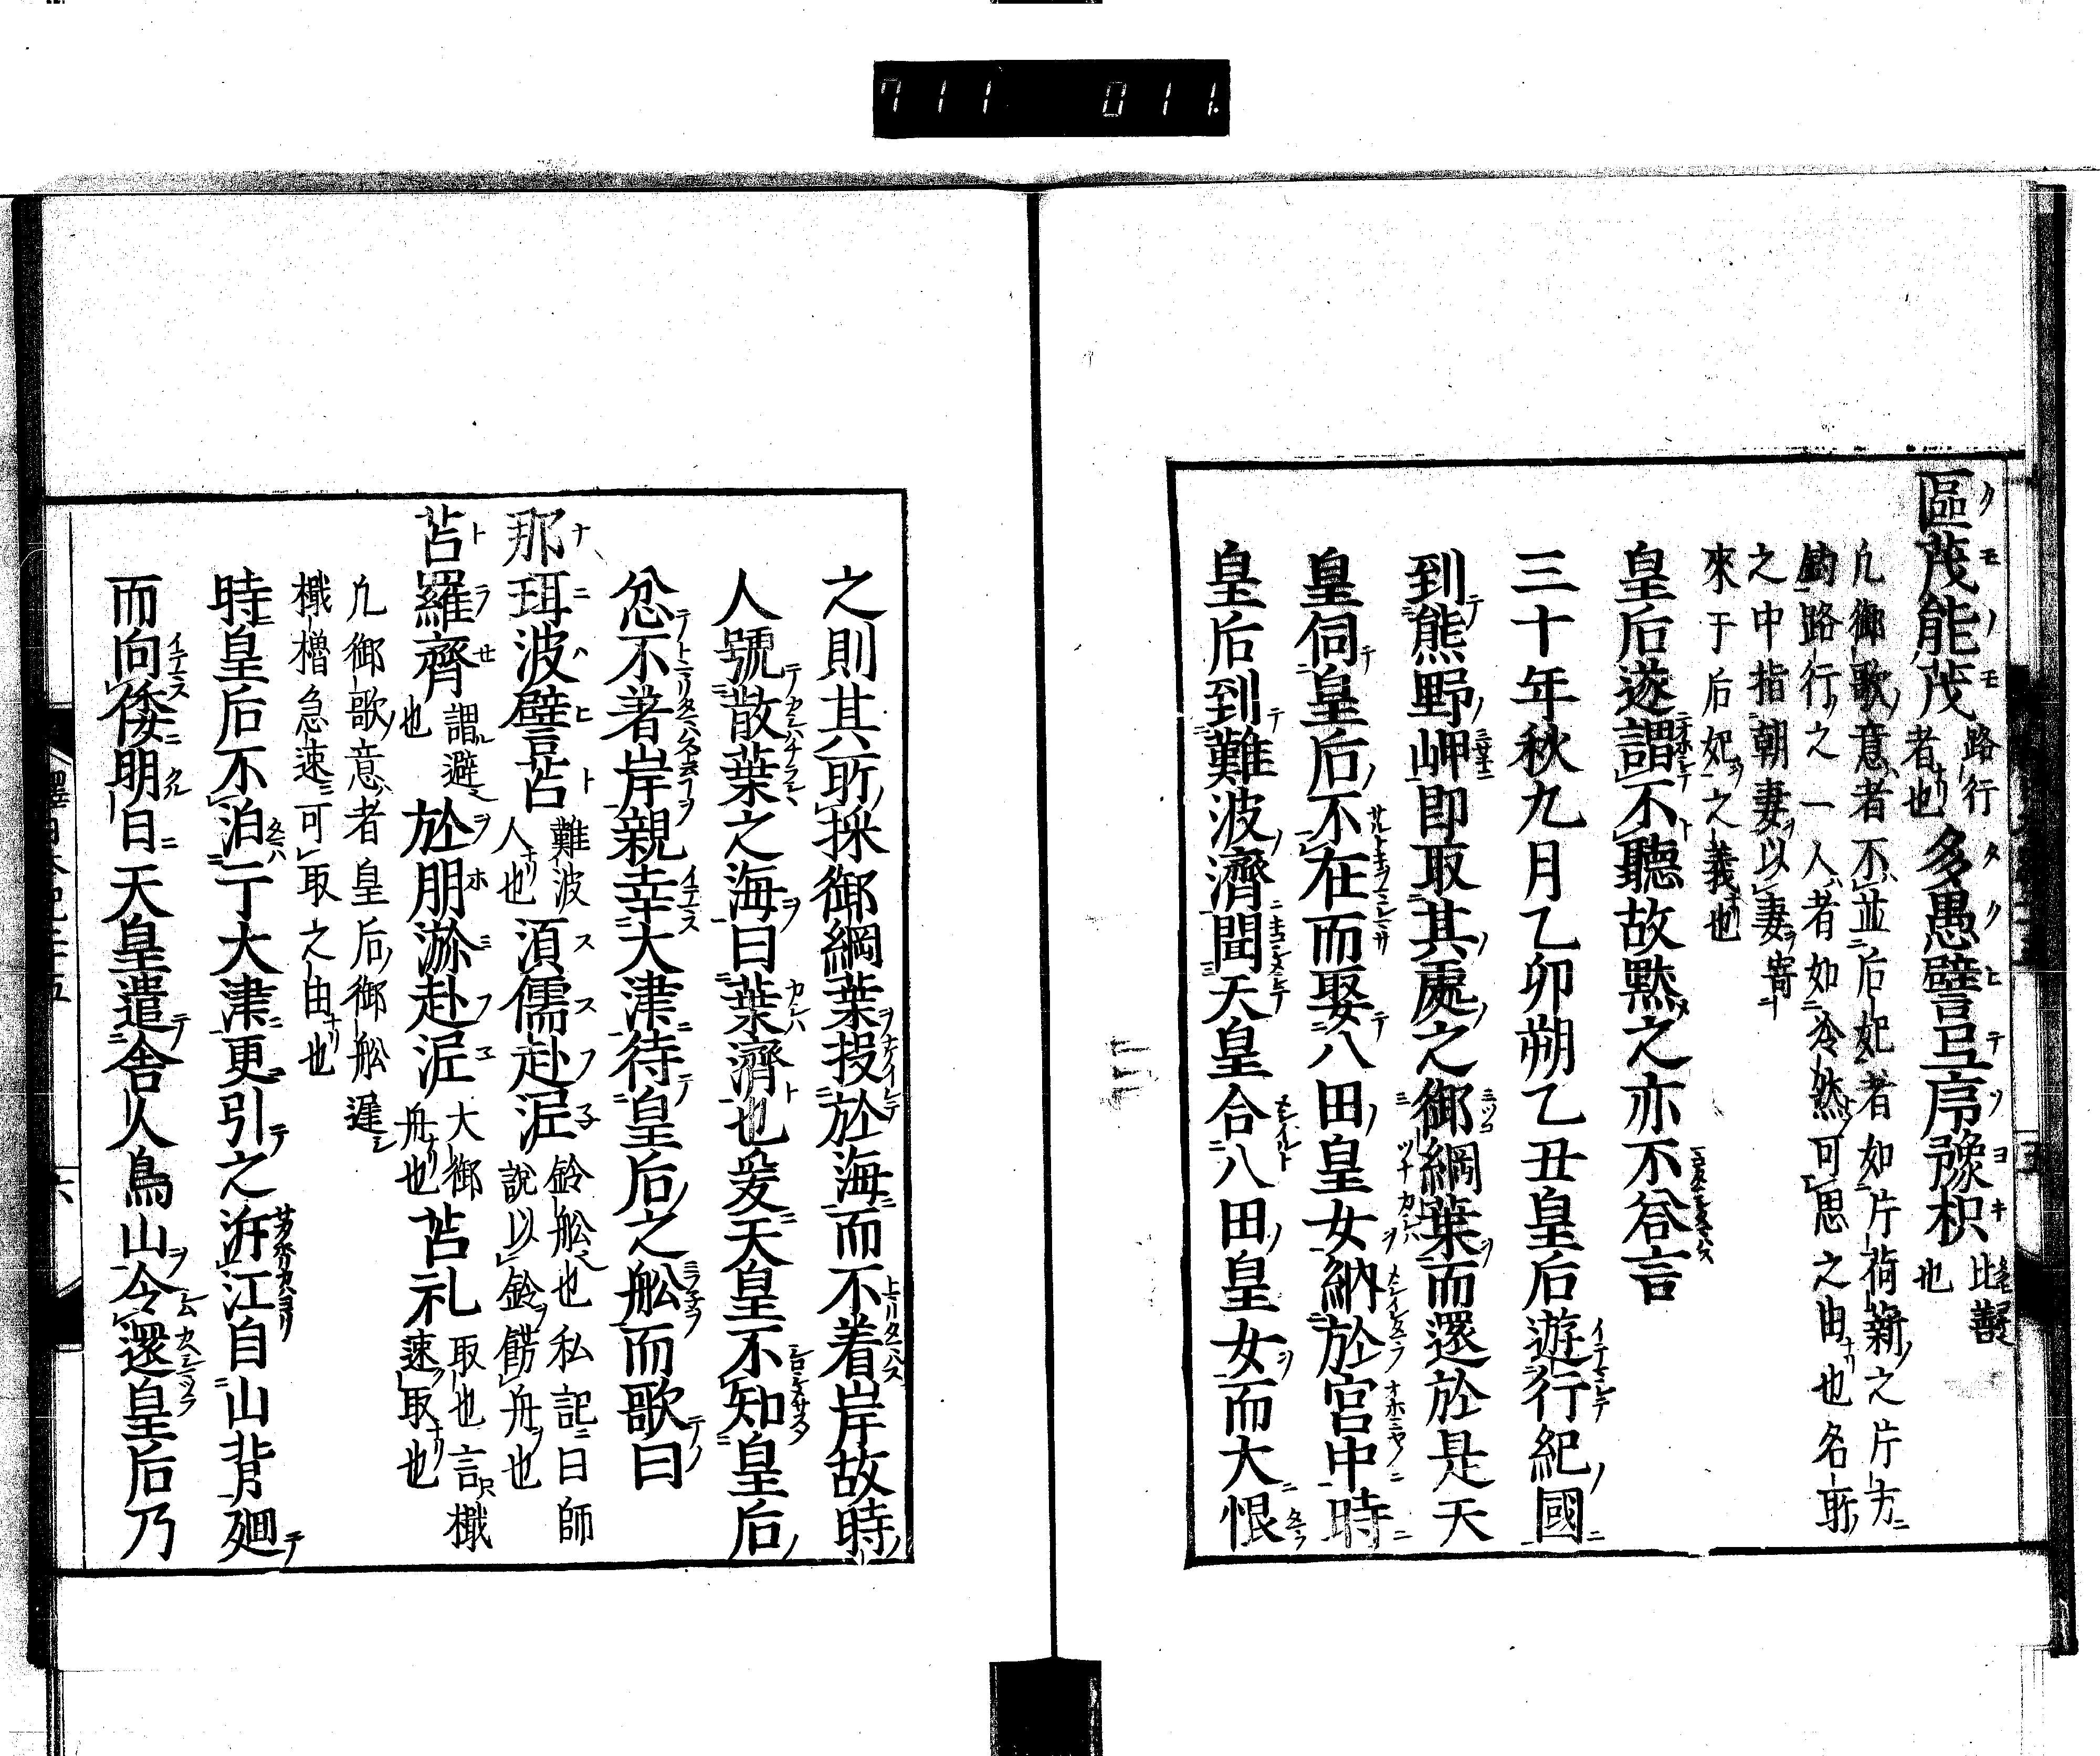 711 011
區茂能茂路行者也多愚譬弖序豫枳比譬也
凡御歌意者不並后妃者如片荷薪之片方
釣路行之一人者如冷然可思之由也名斬
之中指朝妻以妻寄
來于后妃之義也
皇后遂謂不聽故黙之亦不答言
三十年秋九月乙卯朔乙丑皇后遊行紀國
到熊野岬即取其處之御綱葉而還於是天
皇伺皇后不在而娶八田皇女納於宮中時
皇后到難波濟聞天皇合八田皇女而大恨
之則其所採御綱葉投於海而不着岸故時
人號散葉之海曰葉濟也爰天皇不知皇后
忿不著岸親幸大津待皇后之舩而歌曰
那珥波譬苫難波人也須儒赴泥鈴舩也私記曰師說以鈴餝舟也
苫羅齊謂避也於朋瀰赴泥大御舟也苫礼取也言檝速取也
凡御歌意者皇后御舩遲
檝櫓急速可取之由也
時皇后不泊于大津更引之泝江自山背廻
而向倭明日天皇遣舎人鳥山令還皇后乃
釋日本紀二十五
六